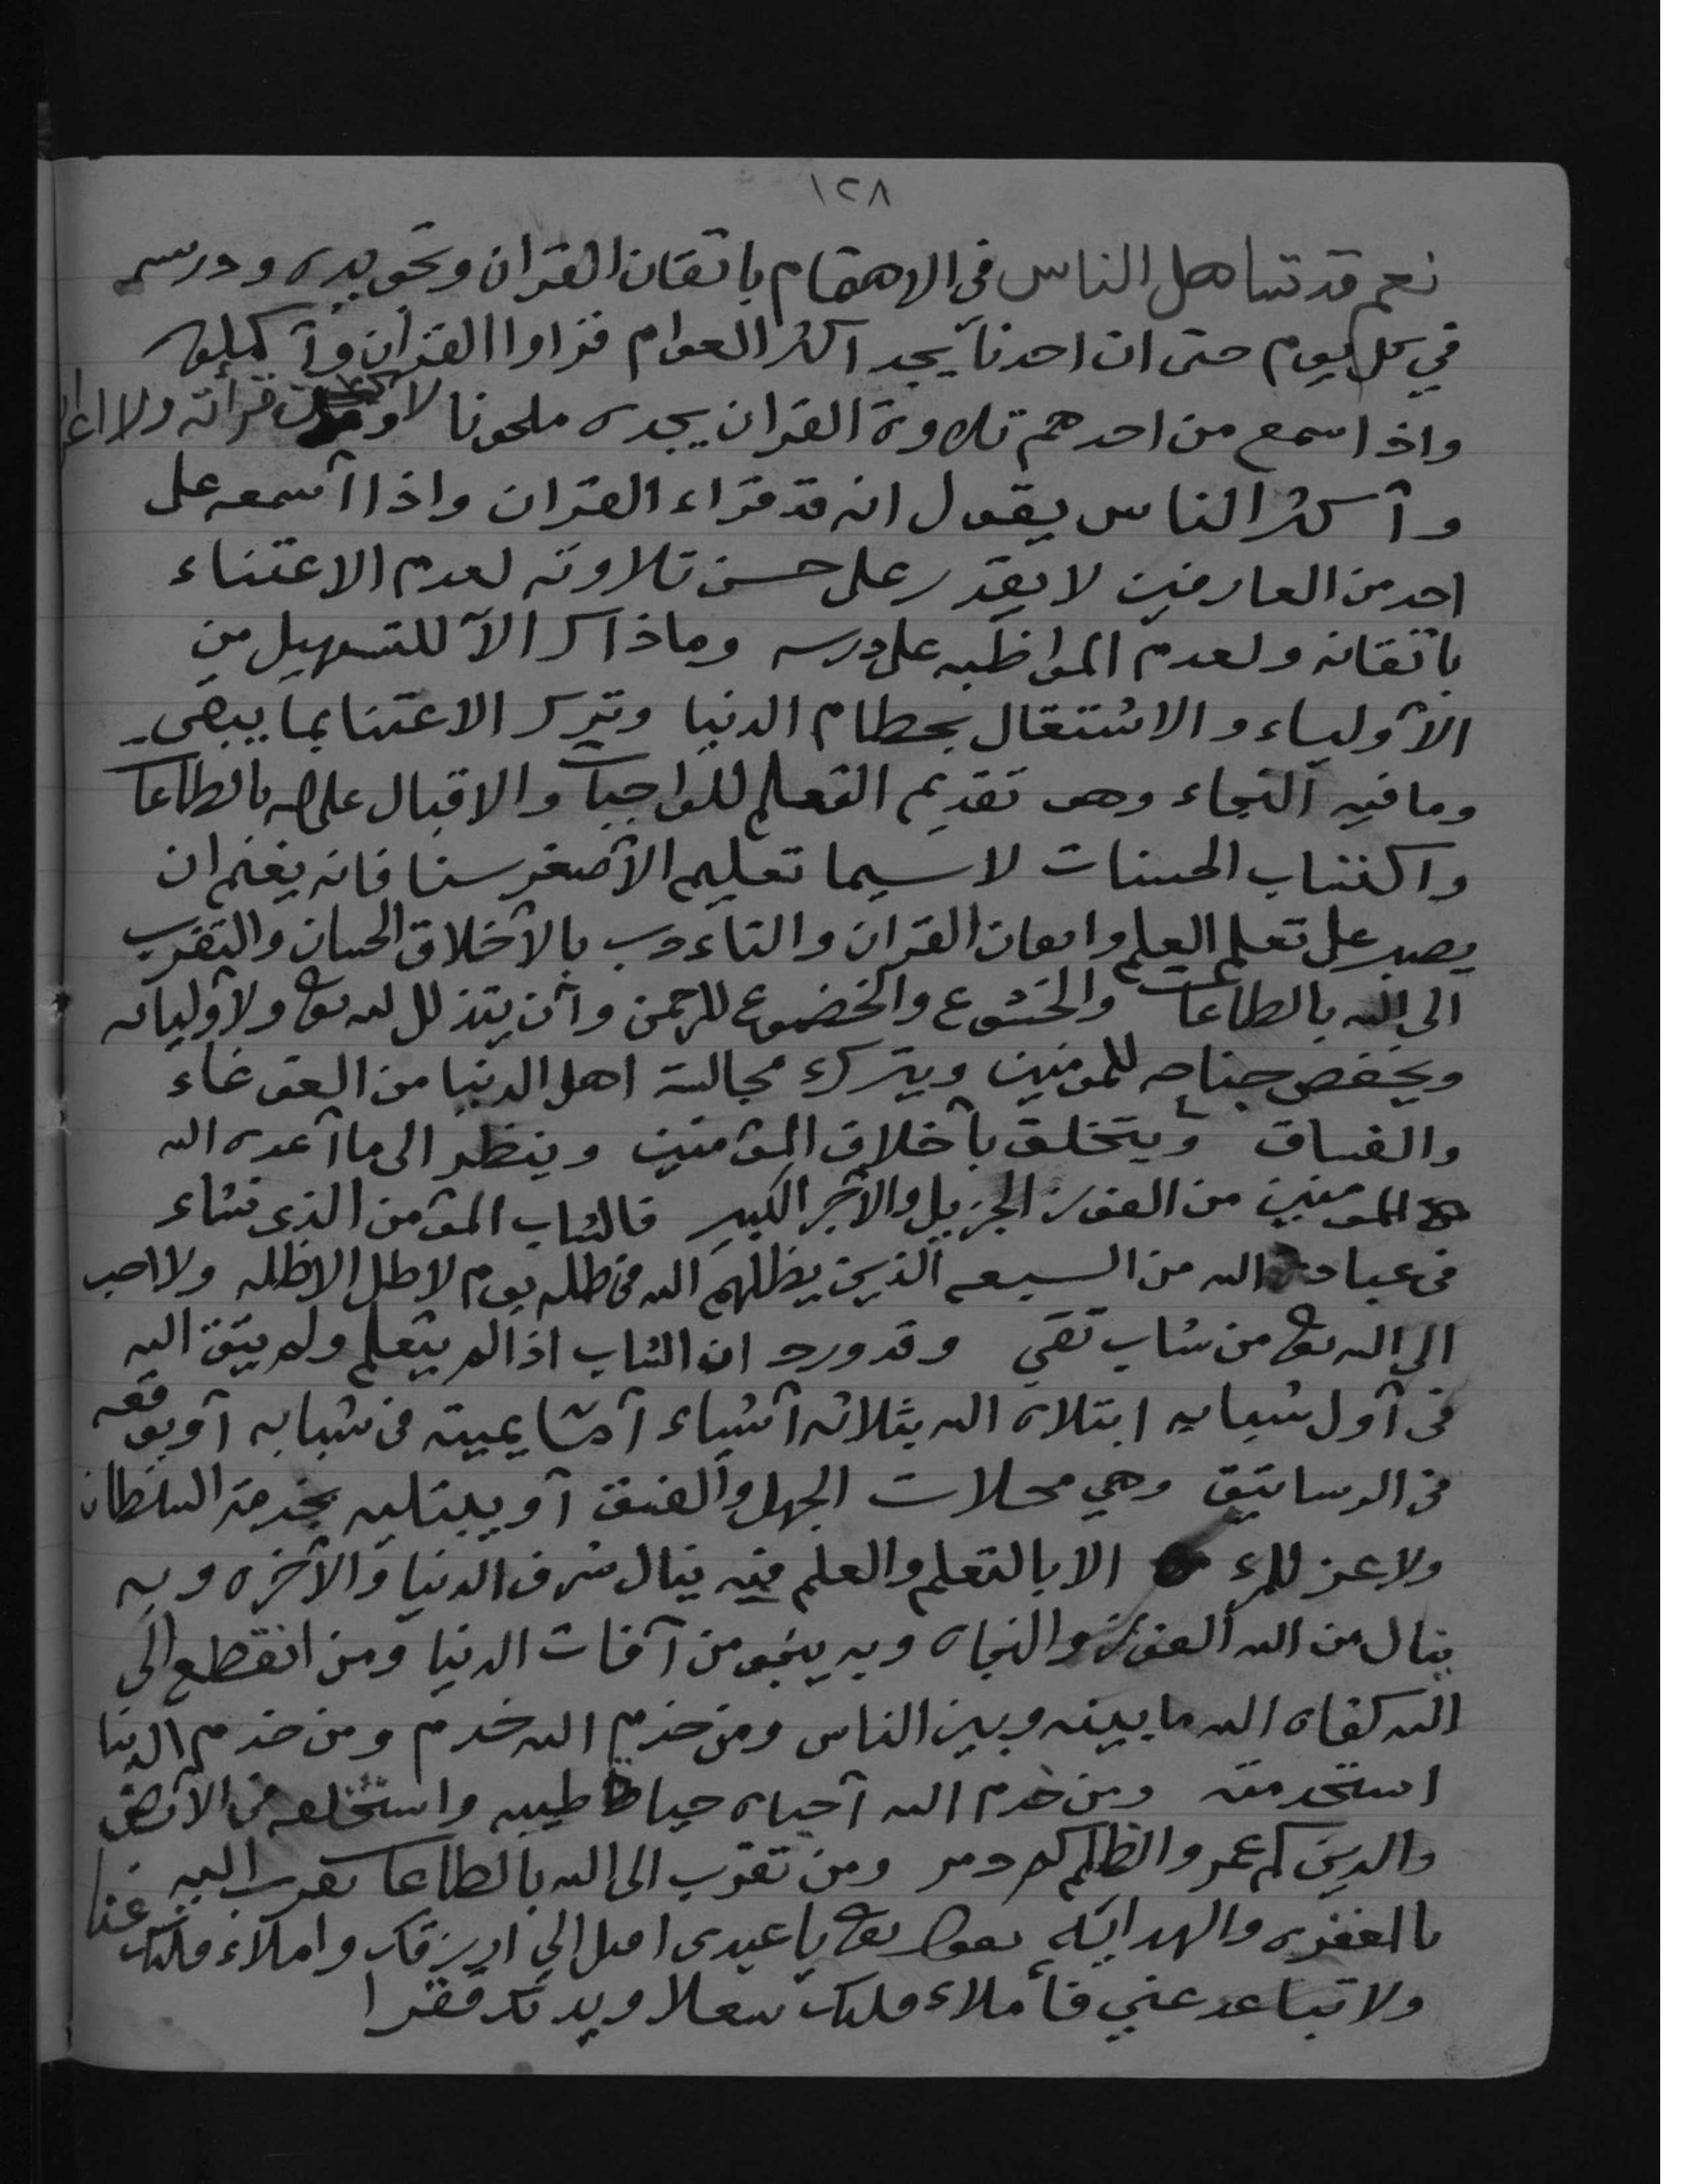 ١٢٨
نعم قد تساهل الناس في الاهتمام باتقان القران وتجويده ودرسه
في كل يوم حتى ان احدنا يجد اكثر العوام قراوا القران وأكملوه
واذا سمع من احدهم تلاوة القران يجده ملحونا لا قرأته ولا
وأكثر الناس يقول انه قد قراء القران واذا أسمعه على
احد من العارفين لا يقدر على حسن تلاوته لعدم الاعتناء
باتقانه ولعدم المواظبه على درسه وماذاك الآ للتسهيل من
الأولياء والاشتغال بحطام الدنيا وترك الاعتنا بما يبقى
وما فيه النجاء وهو تقديم التعلم للواجبات والاقبال على الله بالطاعات
واكتساب الحسنات لاسيما تعليم الأصغر سنا فانه يغنم ان
يصبر على تعلم العلم وامعان القران والتاءدب بالأخلاق الحسان والتقرب
الى الله بالطاعات والخشوع والخضوع للرحمن وأن يتذلل لله تع ولأوليائه
ويخفض جناحه للمومنين ويترك مجالسة اهل الدنيا من الغوغاء
والفساق ويتخلق بأخلاق المؤمنين وينظر الى ما أعده الله
للمومنين من الفوز الجزيل والأجر الكبير فالشاب المؤمن الذي نشاء
في عبادة الله من السبعه الذين يظلهم الله في ظله يوم لا ظل الا ظله ولا احب
الى الله تع من شاب تقي وقد ورد ان الشاب اذا لم يتعلم ولم يتق الله
في أول شبابه ابتلاه الله بثلاثه أشياء أما يميته في شبابه أو يوقعه
في الرساتيق وهي محلات الجهل والفسق أو يبتليه بخدمة السلطان
ولا عز للمرء الا بالتعلم والعلم فيه ينال شرف الدنيا والأخره وبه
ينال من الله الفوز والنجاه وبه ينجو من آفات الدنيا ومن انقطع الى
الله كفاه الله ما بينه وبين الناس ومن خدم الله خدم ومن خدم الدنيا
استخدمته ومن خدم الله أحياه حياة طيبه واستخلفه في الأرض
والدين كم عمر والظلم كم دمر ومن تقرب الى الله بالطاعات تقرب اليه
بالمغفره والهدايه يقول تع يا عبدي اقبل الي ارزقك واملاء قلبك غنا
ولا تباعد عني فأملاء قلبك شغلا ويدك فقرا